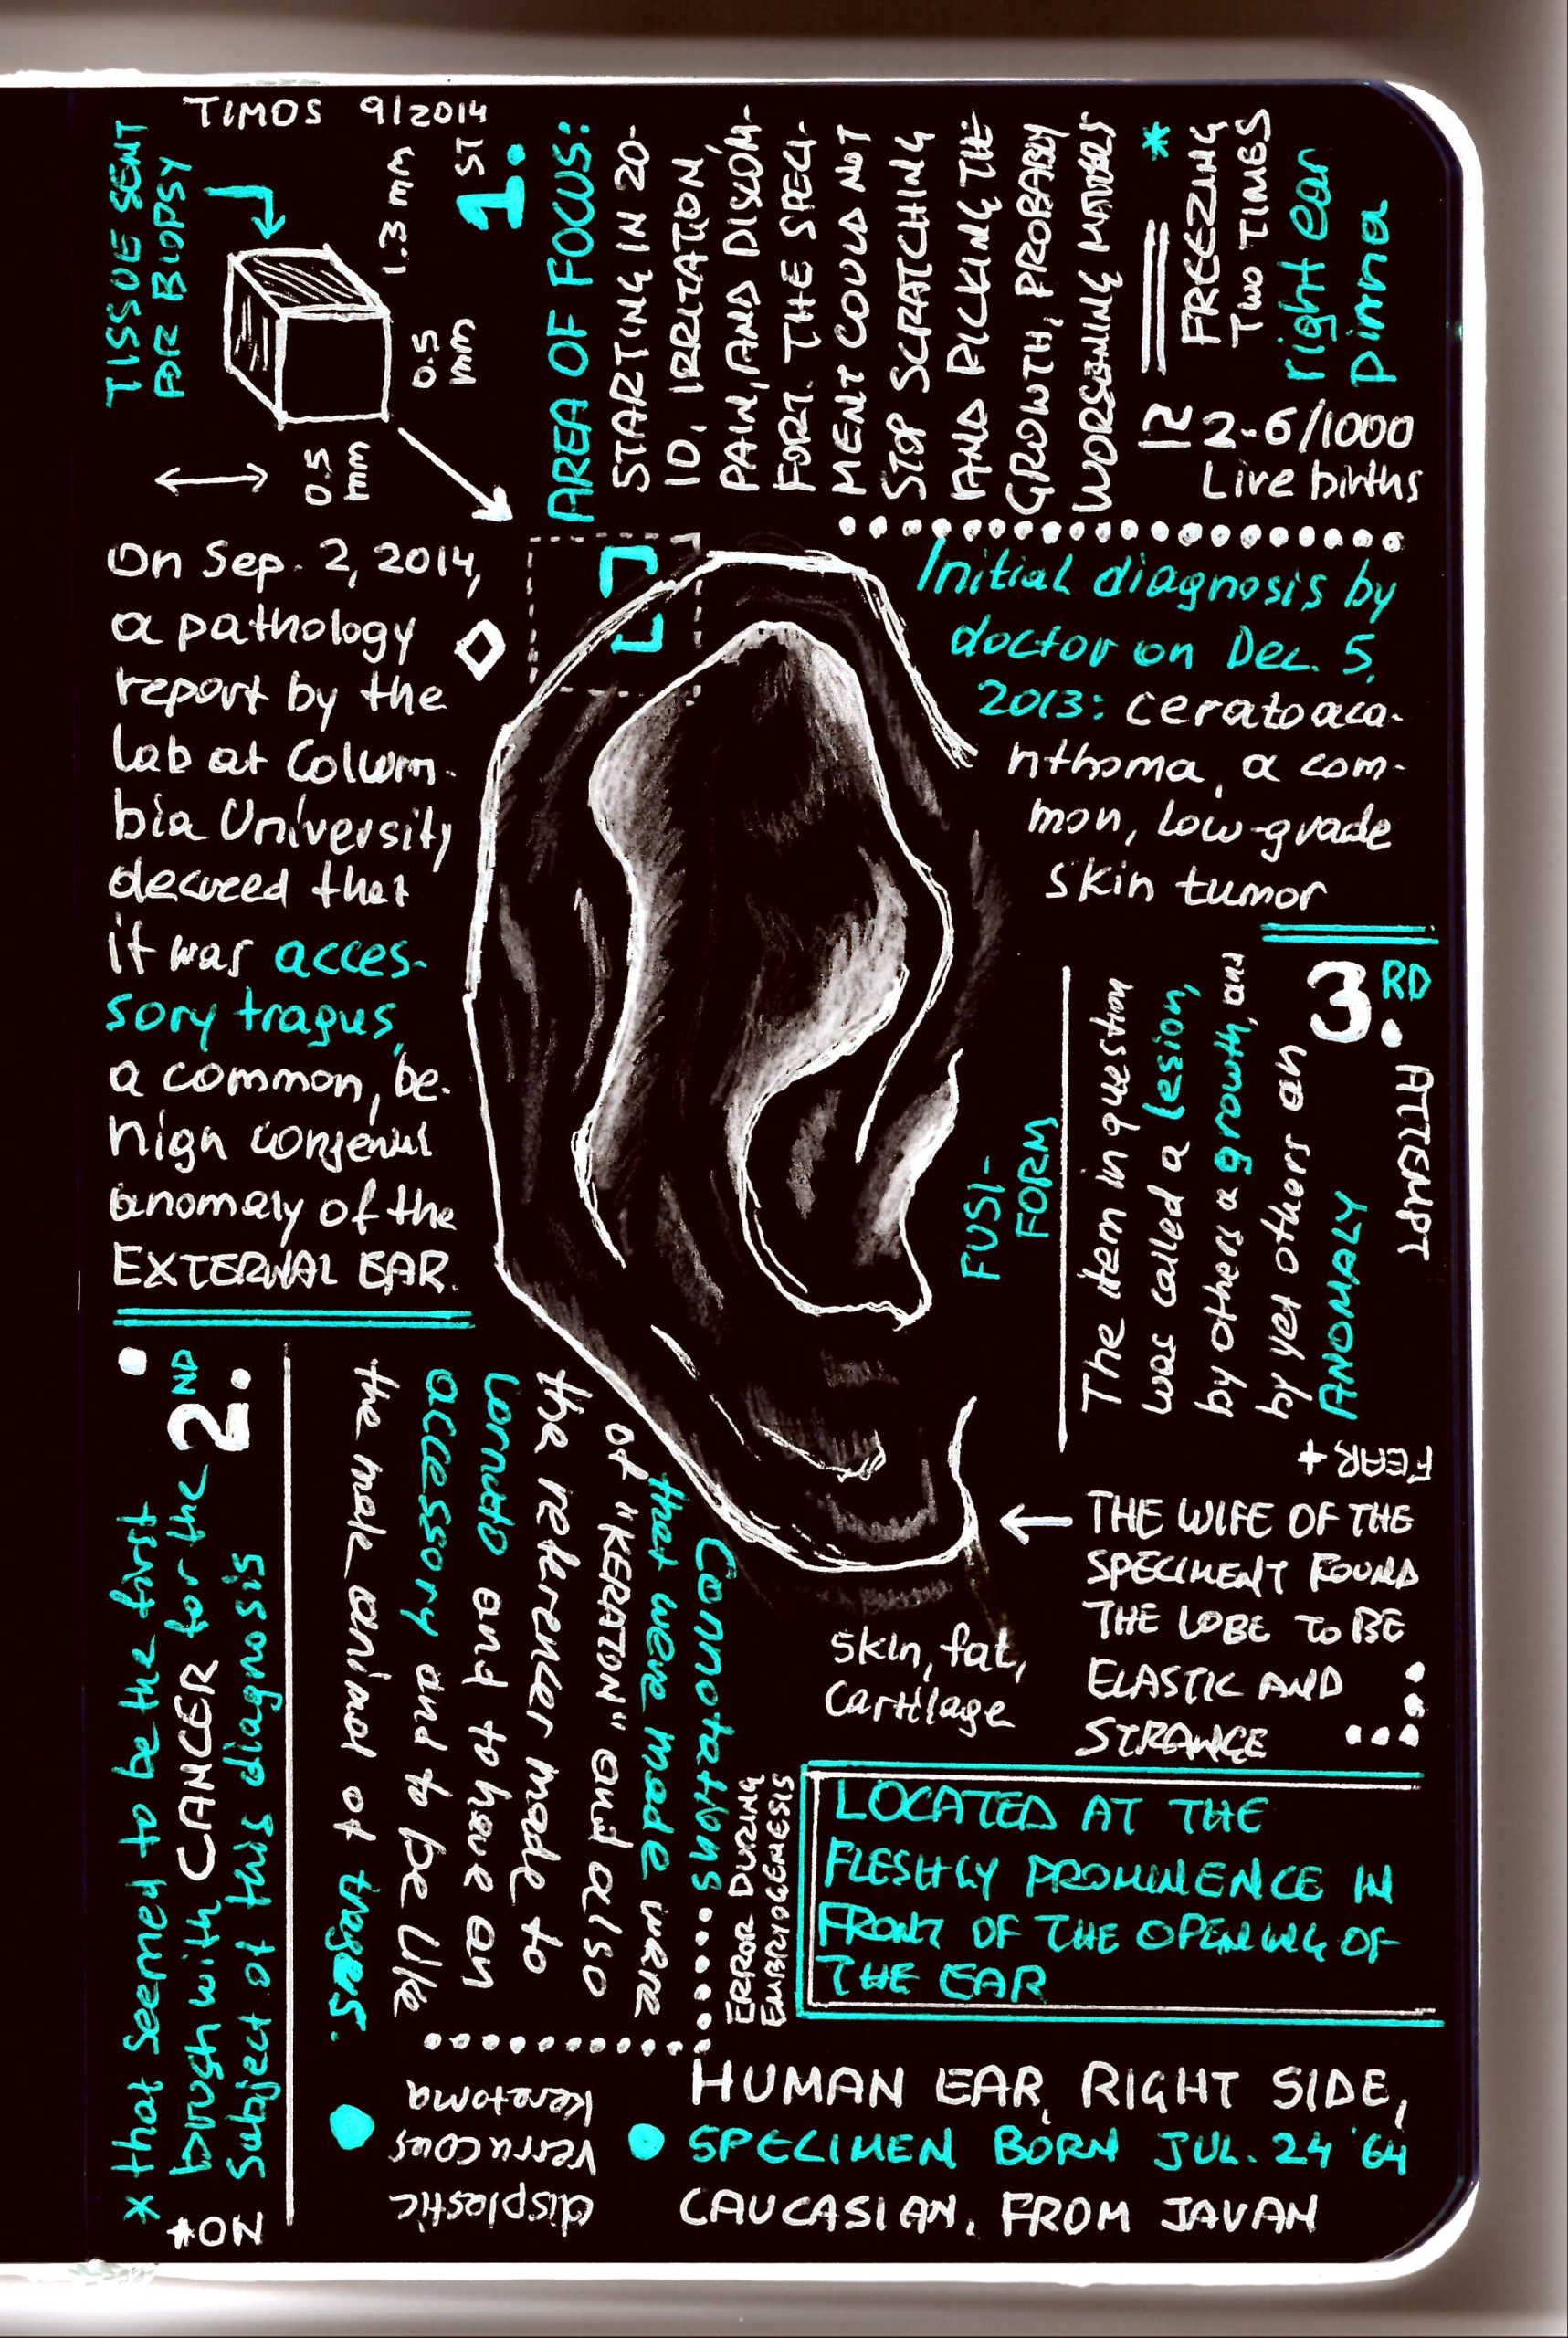 TIMOS 9/2014
TISSUE SENT
FOR BIOPSY
1.3 mm
0.5
mm
0.5
mm
1. ST
AREA OF FOCUS:
STARTING IN 20-
10, IRRITATION,
PAIN, AND DISCOM-
FORT. THE SPECI-
MENT COULD NOT
STOP SCRATCHING
AND PICKING THE
GROWTH, PROBABLY
WORSENING MATTERS
*
FREEZING
TWO TIMES
right ear
pinna
≈ 2-6/1000
Live births
On Sep. 2, 2014,
a pathology
report by the
Lab at Colum-
bia University
decreed that
it was acces-
sory tragus,
a common, be-
nign congenial
anomaly of the
EXTERNAL EAR.
Initial diagnosis by
doctor on Dec. 5,
2013: ceratoaca-
nthoma, a com-
mon, low-grade
skin tumor
3. RD
ATTEMPT
The item in question
was called a lesion,
by others a growth, and
by yet others an
ANOMALY
FUSI-
FORM
FEAR +
THE WIFE OF THE
SPECIMENT FOUND
THE LOBE TO BE
ELASTIC AND
STRANGE
skin, fat,
cartilage
2. ND
* that seemed to be the first
brush with CANCER for the
Subject of this diagnosis
*ON
Connotations
that were made were
of "KERATON" and also
the reference made to
cornuto and to have an
accessory and to be like
the male animal of trages.
ERROR DURING
EMBRYOGENESIS
LOCATED AT THE
FLESHLY PROMINENCE IN
FRONT OF THE OPENING OF
THE EAR
displastic
verrucous
keratoma
HUMAN EAR, RIGHT SIDE,
SPECIMEN BORN JUL. 24 '64
CAUCASIAN. FROM JAVAN